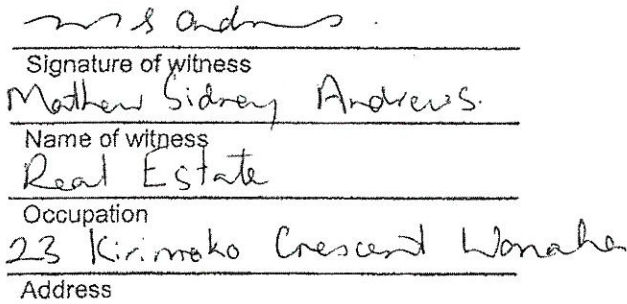 m s Andrews.
Signature of witness
Mathew Sidney Andrews.
Name of witness
Real Estate
Occupation
23 Kirimoko Crescent Wanaka
Address